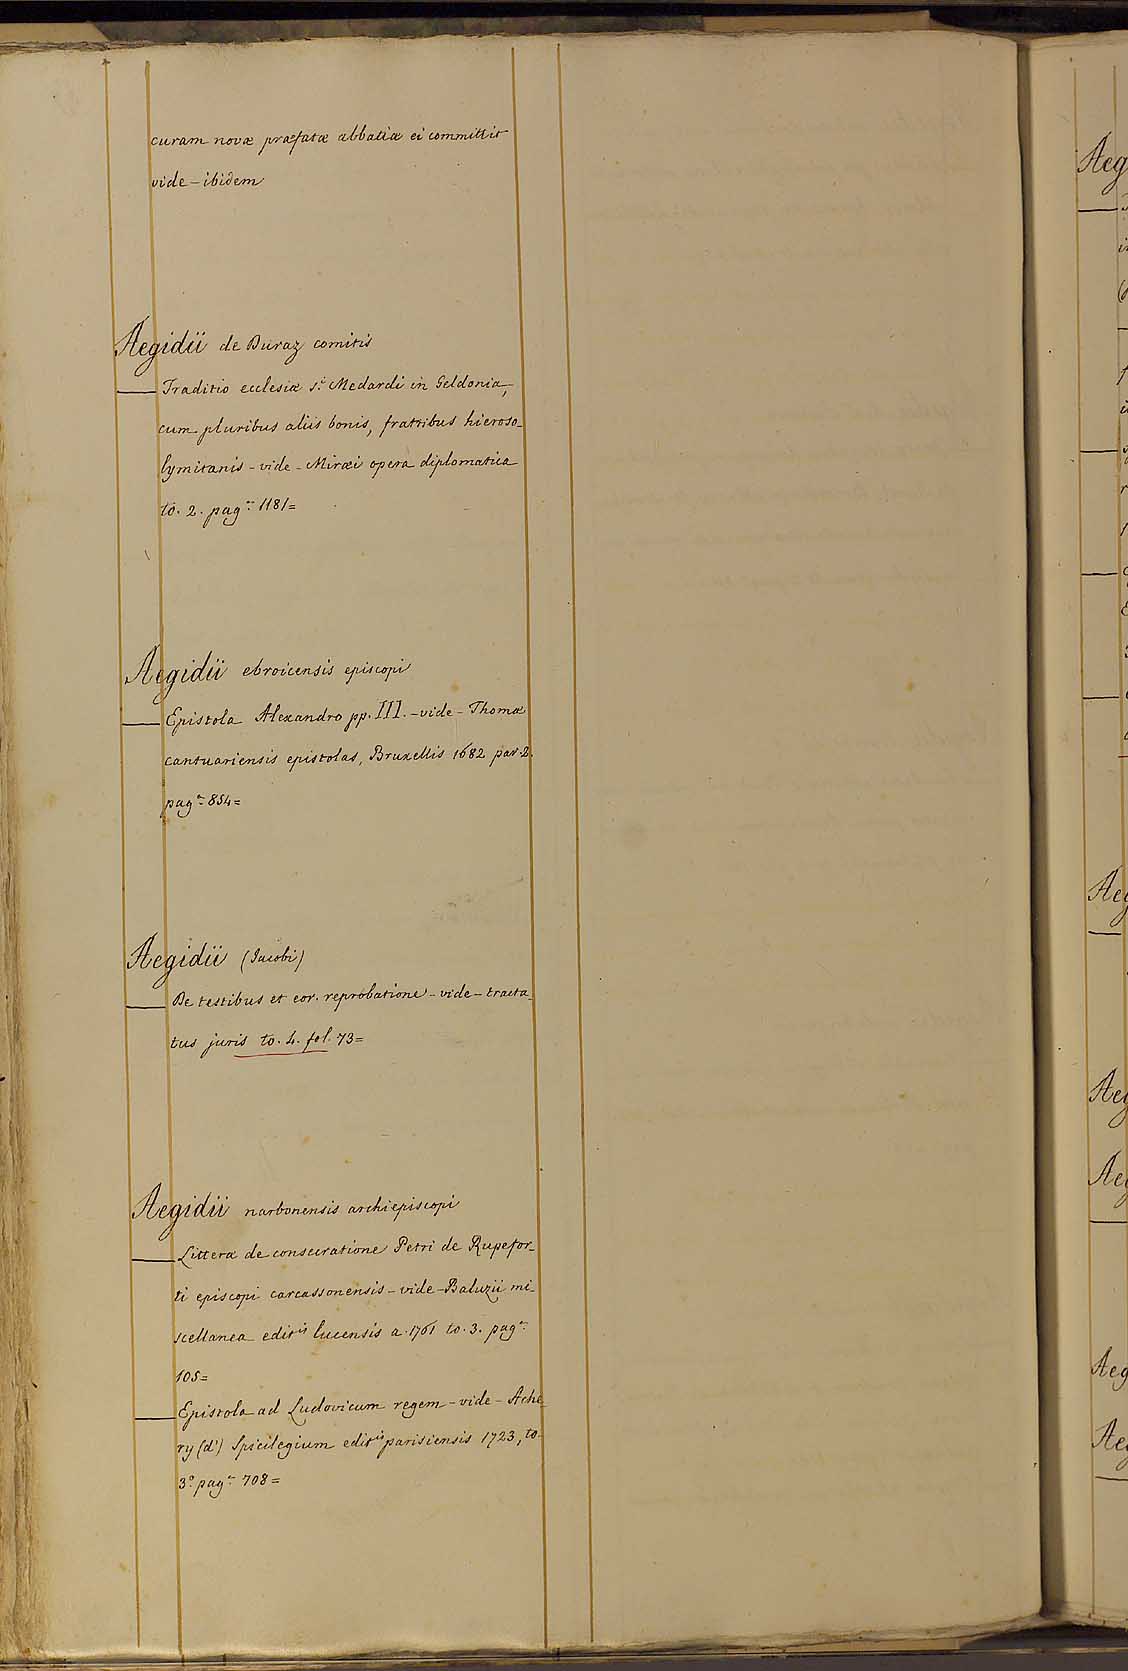 curam novæ præfatæ abbatiæ ei committit
vide - ibidem
Aegidii de Duraz comitis
Traditio ecclesiæ s.ti Medardi in Geldonia,
cum pluribus aliis bonis, fratribus hieroso-
lymitanis - vide - Miræi opera diplomatica
to. 2. pag.na 1181=
Aegidii ebroicensis episcopi
Epistola Alexandro pp. III. - vide - Thomæ
cantuariensis epistolas, Bruxellis 1682 par. 2.
pag.na 854=
Aegidii (Jacobi)
De testibus et eor. reprobatione - vide - tracta-
tus juris to. 4. fol. 73=
Aegidii narbonensis archiepiscopi
Litteræ de consecratione Petri de Rupefor-
ti episcopi carcassonensis - vide - Baluzii mi-
scellanea edit.is lucensis a. 1761 to. 3. pag.na
105=
Epistola ad Ludovicum regem - vide - Ache-
ry (d') Spicilegium edit.is parisiensis 1723, to.
3.o pag.na 708=
Aeg
Aeg
Aeg
Aeg
Aeg
Aeg